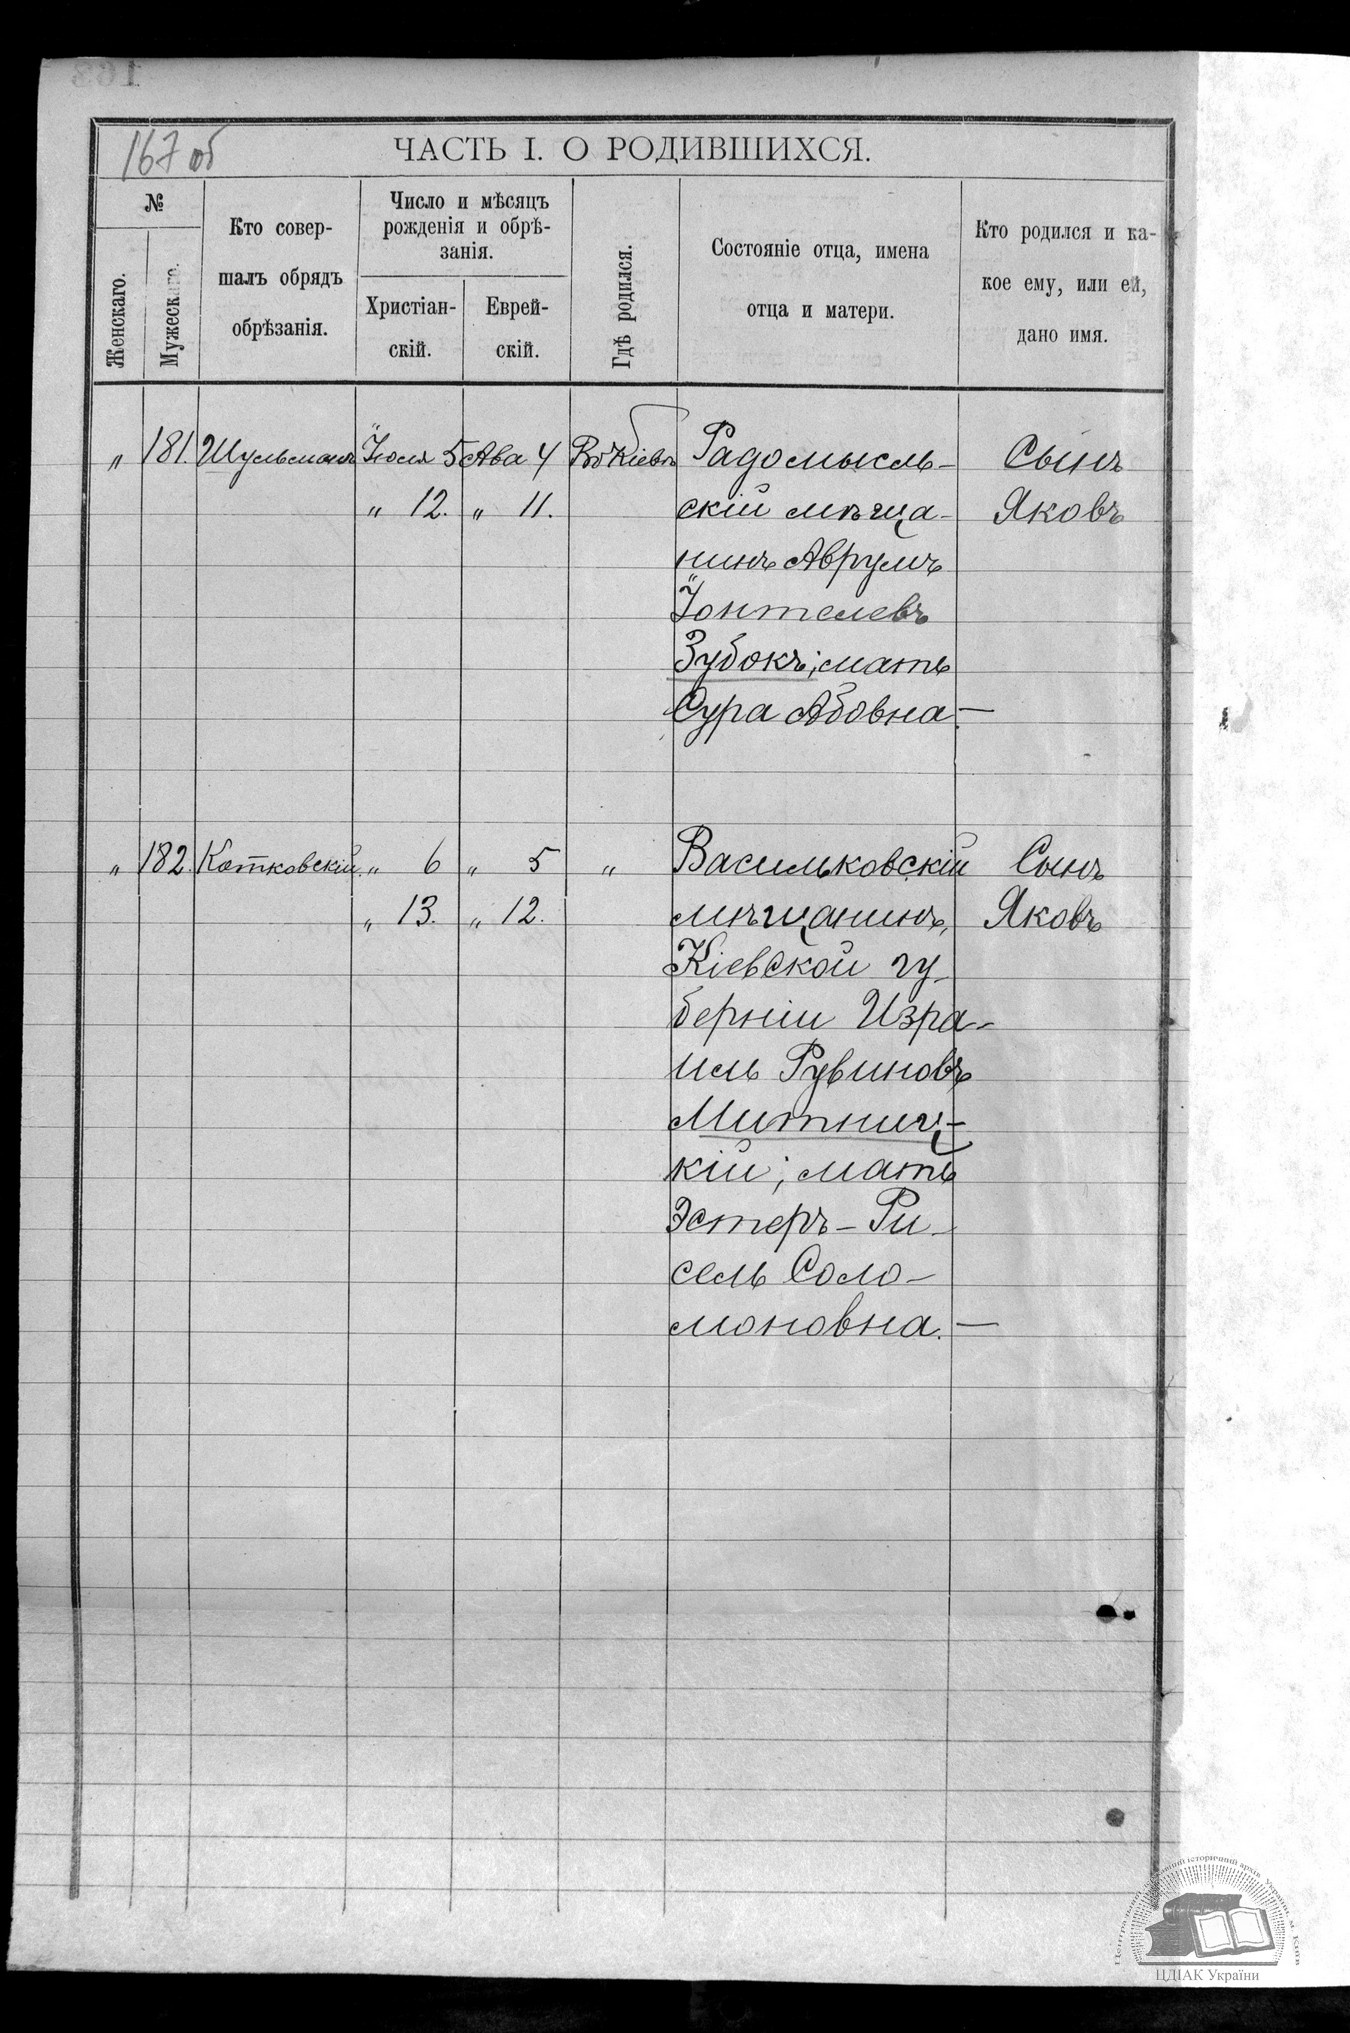 167 об
ЧАСТЬ I. О РОДИВШИХСЯ.
№
Женскаго.
Мужескаго.
Кто совер-
шалъ обрядъ
обрѣзанія.
Число и мѣсяцъ
рожденія и обрѣ-
занія.
Христіан-
скій.
Еврей-
скій.
Гдѣ родился.
Состояніе отца, имена
отца и матери.
Кто родился и ка-
кое ему, или ей,
дано имя.
„ 181. Шульманъ Іюля 5 Ава 4 Въ Кіевѣ Радомысль- Сынъ
„ 12. „ 11. скій мѣща- Яковъ
нинъ Аврумъ
Іонтелевъ
Зубокъ; мать
Сура Абовна.—
„ 182. Котковскій „ 6 „ 5 „ Васильковскій Сынъ
„ 13. „ 12. мѣщанинъ, Яковъ
Кіевской гу-
берніи Изра-
иль Рувиновъ
Митниц-
кій; мать
Эстеръ-Ри-
сель Соло-
моновна.—
ЦДІАК України